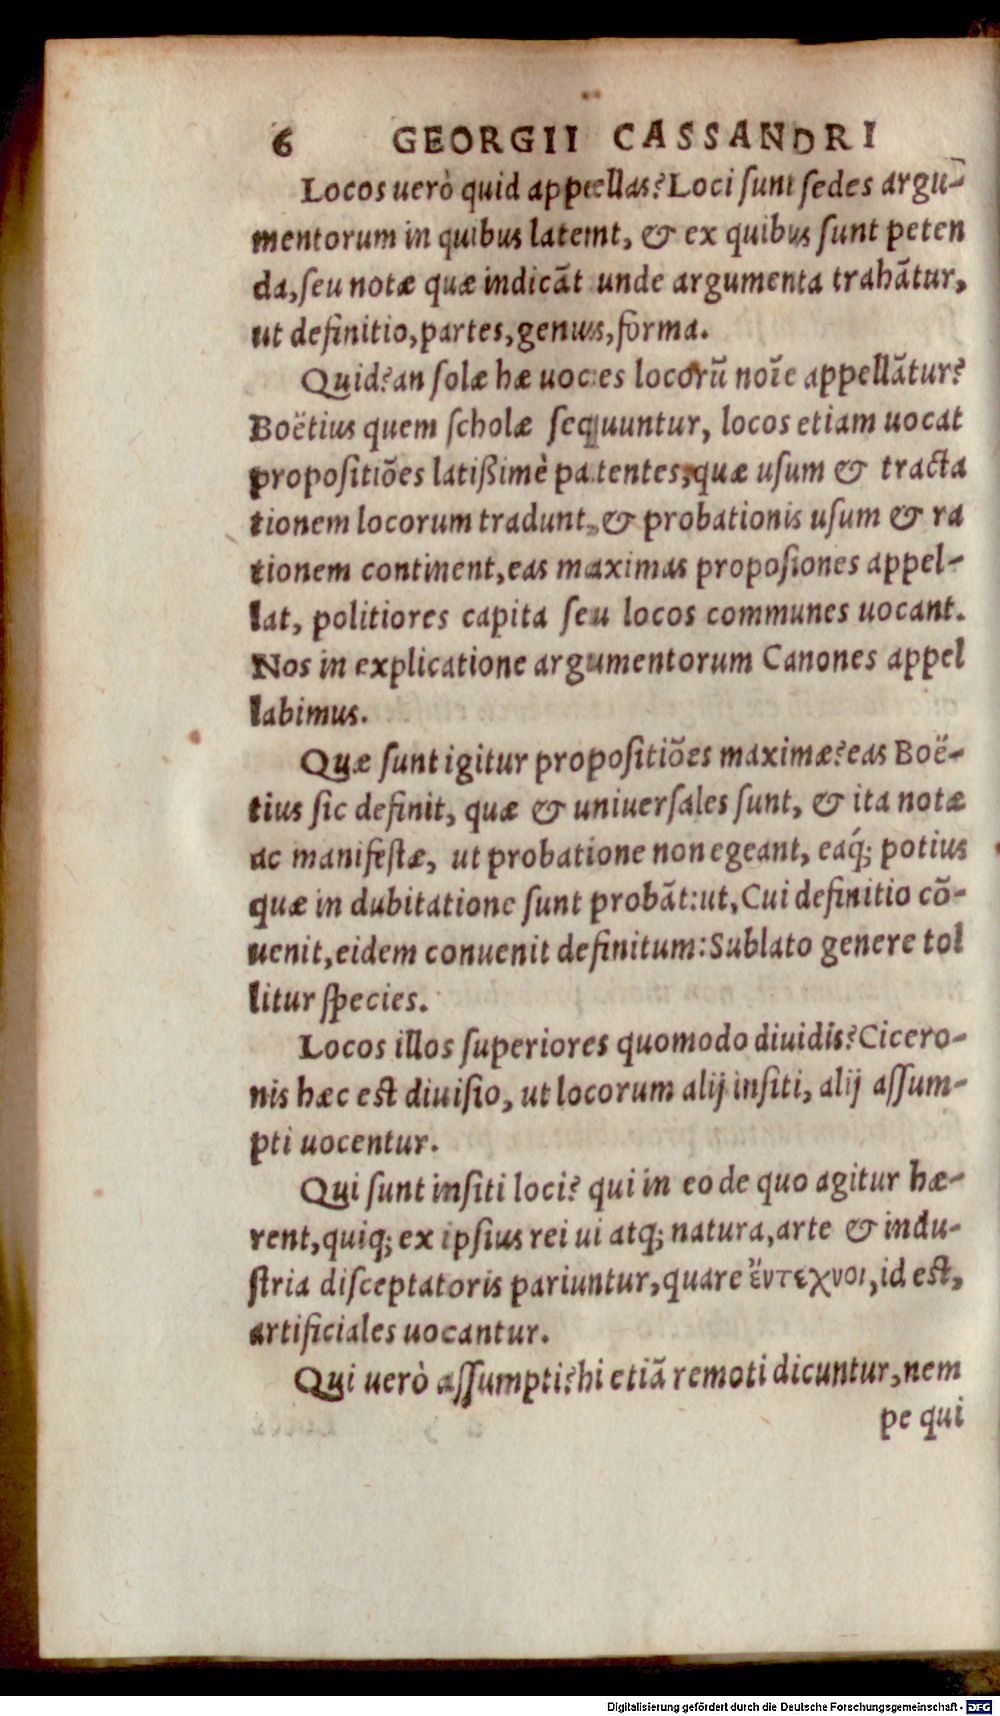 6 GEORGII CASSANDRI
Locos uerò quid appellas? Loci sunt sedes argu-
mentorum in quibus latent, & ex quibus sunt peten
da, seu notæ quæ indicãt unde argumenta trahãtur,
ut definitio, partes, genus, forma.
Quid? an solæ hæ uoces locorũ noĩe appellãtur?
Boëtius quem scholæ sequuntur, locos etiam uocat
propositiões latißimè patentes, quæ usum & tracta
tionem locorum tradunt, & probationis usum & ra
tionem continent, eas maximas proposiones appel-
lat, politiores capita seu locos communes uocant.
Nos in explicatione argumentorum Canones appel
labimus.
Quæ sunt igitur propositiões maximæ? eas Boë-
tius sic definit, quæ & uniuersales sunt, & ita notæ
ac manifestæ, ut probatione non egeant, eaq́; potius
quæ in dubitatione sunt probãt: ut, Cui definitio cõ-
uenit, eidem conuenit definitum: Sublato genere tol
litur species.
Locos illos superiores quomodo diuidis? Cicero-
nis hæc est diuisio, ut locorum alij insiti, alij assum-
pti uocentur.
Qui sunt insiti loci? qui in eo de quo agitur hæ-
rent, quiq; ex ipsius rei ui atq; natura, arte & indu-
stria disceptatoris pariuntur, quare ἔντεχνοι, id est,
artificiales uocantur.
Qui uerò assumpti? hi etiã remoti dicuntur, nem
pe qui
Digitalisierung gefördert durch die Deutsche Forschungsgemeinschaft - DFG